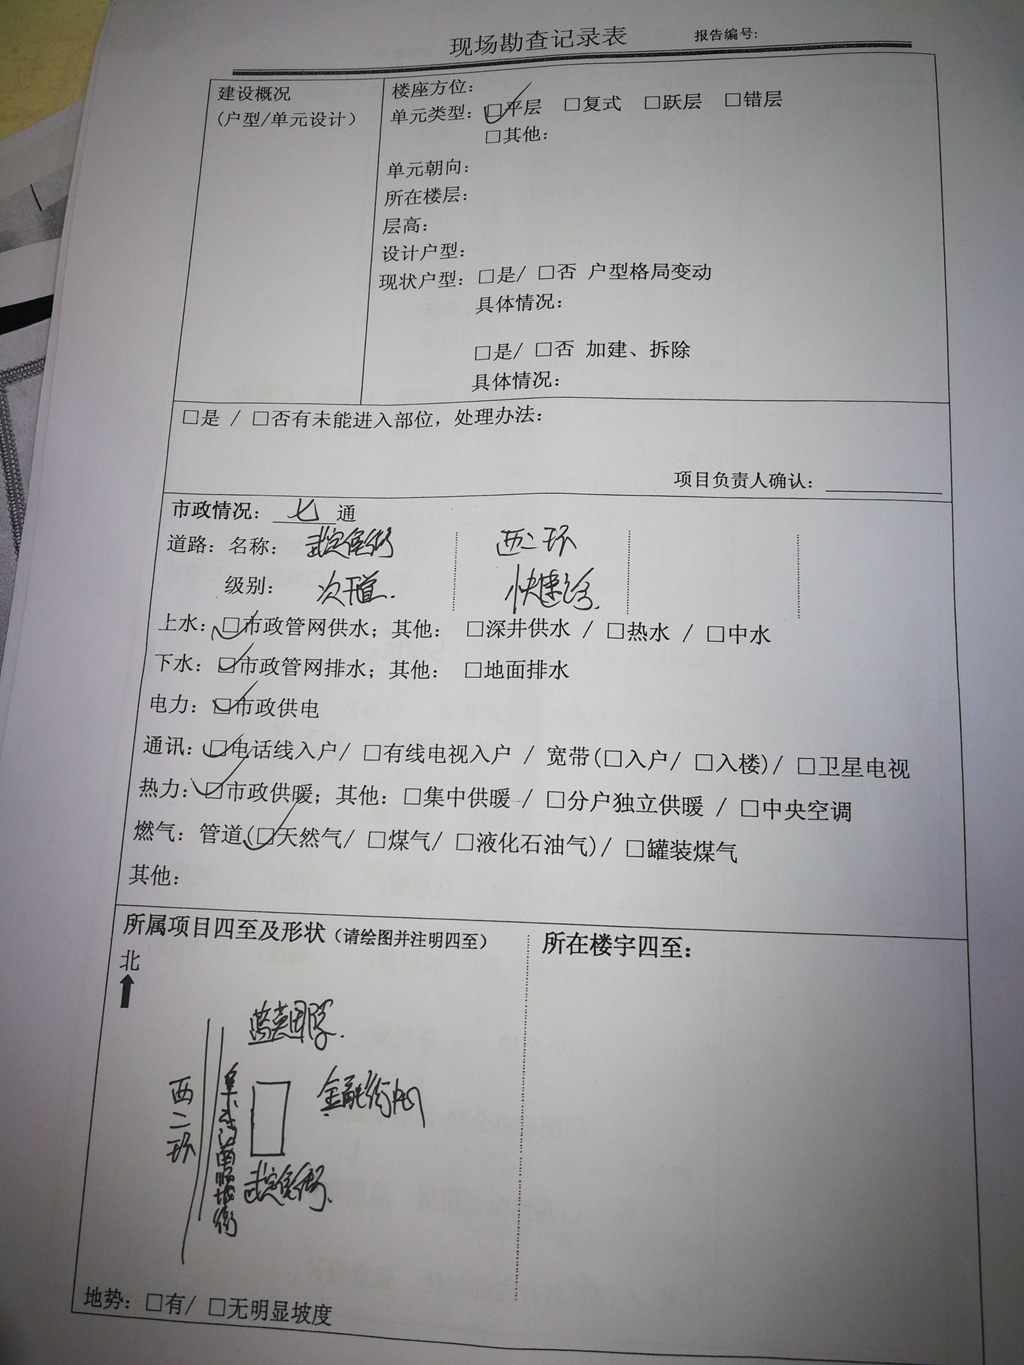 现场勘查记录表
报告编号:
建设概况
(户型/单元设计)
楼座方位:
单元类型: ☑平层 □复式 □跃层 □错层
□其他:
单元朝向:
所在楼层:
层高:
设计户型:
现状户型: □是/ □否 户型格局变动
具体情况:
□是/ □否 加建、拆除
具体情况:
□是 / □否有未能进入部位, 处理办法:
项目负责人确认:
市政情况: 七 通
道路: 名称: 武定侯街 西二环
级别: 次干道. 快速路.
上水: ☑市政管网供水; 其他: □深井供水 / □热水 / □中水
下水: ☑市政管网排水; 其他: □地面排水
电力: ☑市政供电
通讯: ☑电话线入户/ □有线电视入户 / 宽带(□入户/ □入楼)/ □卫星电视
热力: ☑市政供暖; 其他: □集中供暖 / □分户独立供暖 / □中央空调
燃气: 管道(☑天然气/ □煤气/ □液化石油气)/ □罐装煤气
其他:
所属项目四至及形状 (请绘图并注明四至)
所在楼宇四至:
北
西二环
阜成门南顺城街
金融街
武定侯街.
地势: □有/ □无明显坡度